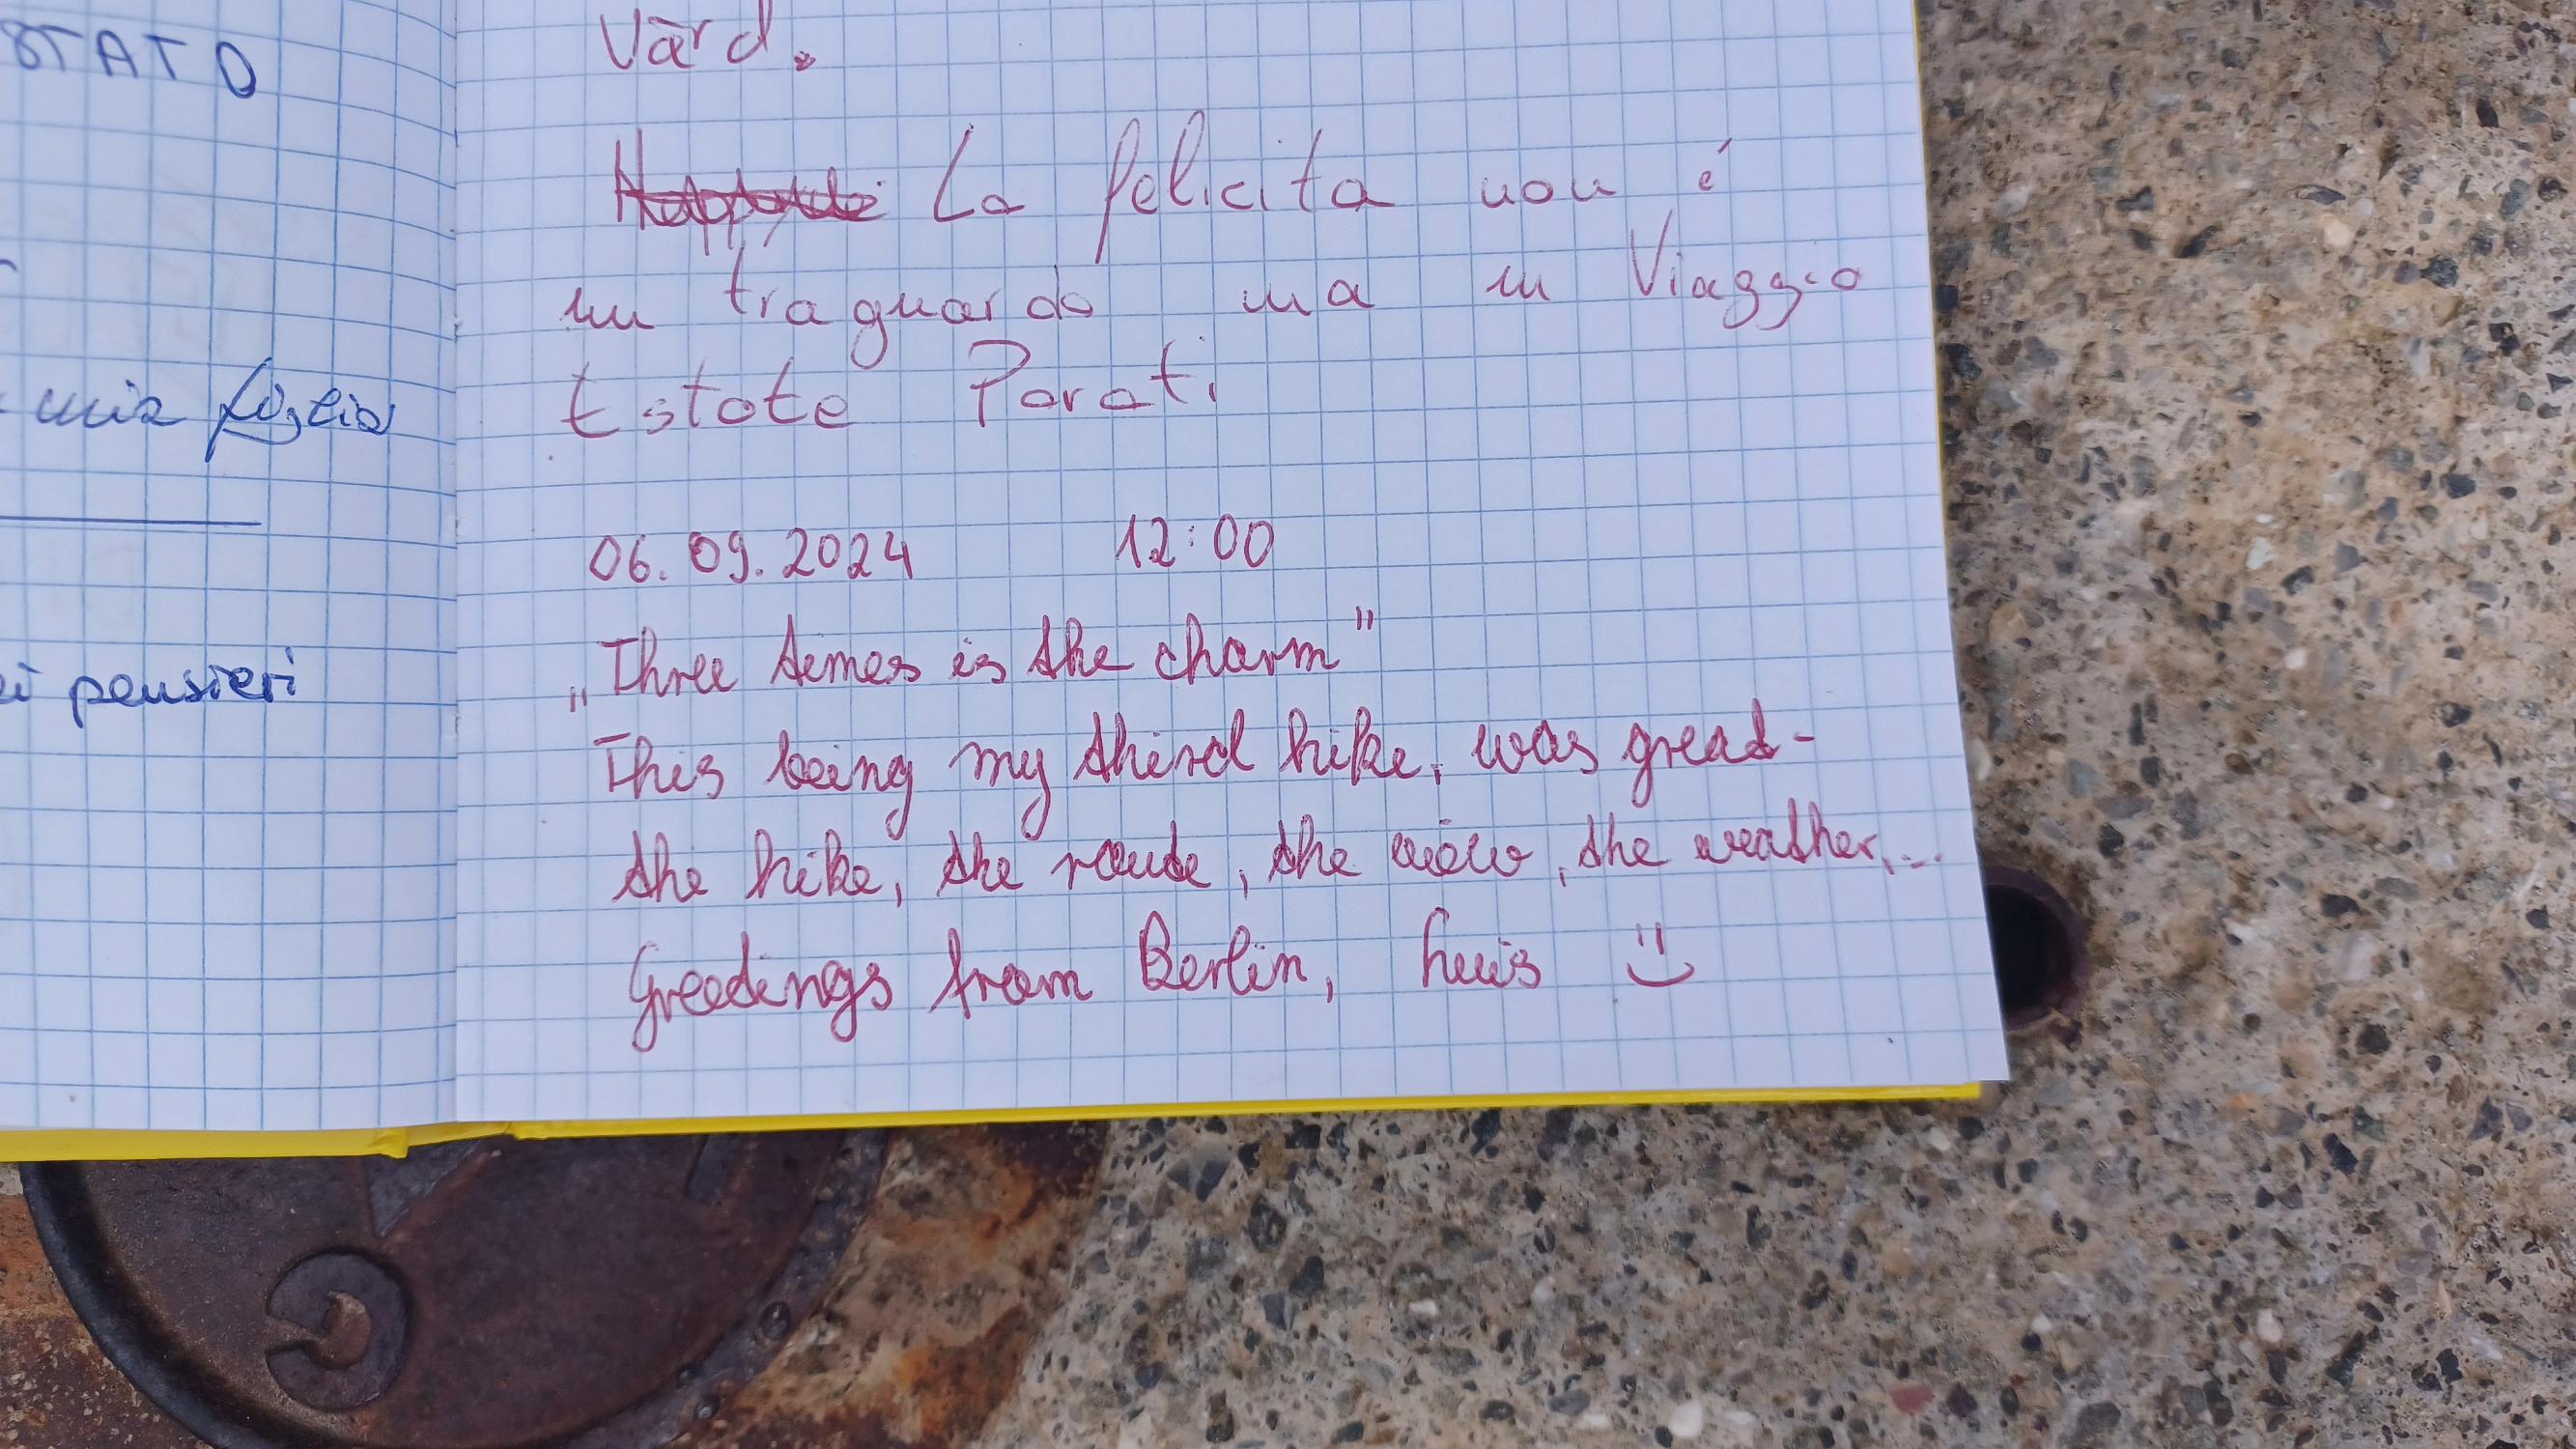 STATO
mia figlia
pensieri
Värd.
La felicita non é
un traguardo ma un Viaggio
Estote Parati
06.09.2024 12:00
„Three times is the charm"
This being my third hike, was great-
the hike, the route, the view, the weather,...
Greetings from Berlin, :)
G